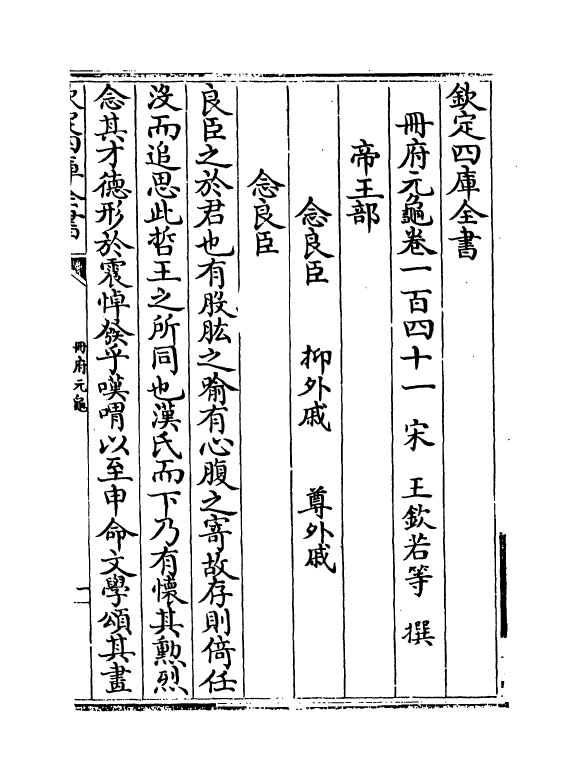 欽定四庫全書
冊府元龜卷一百四十一　宋　王欽若等　撰
帝王部
念良臣　抑外戚　尊外戚
念良臣
良臣之於君也有股肱之喻有心腹之寄故存則倚任
沒而追思此哲王之所同也漢氏而下乃有懷其勳烈
念其才德形於震悼發乎嘆喟以至申命文學頌其畫
欽定四庫全書
冊府元龜